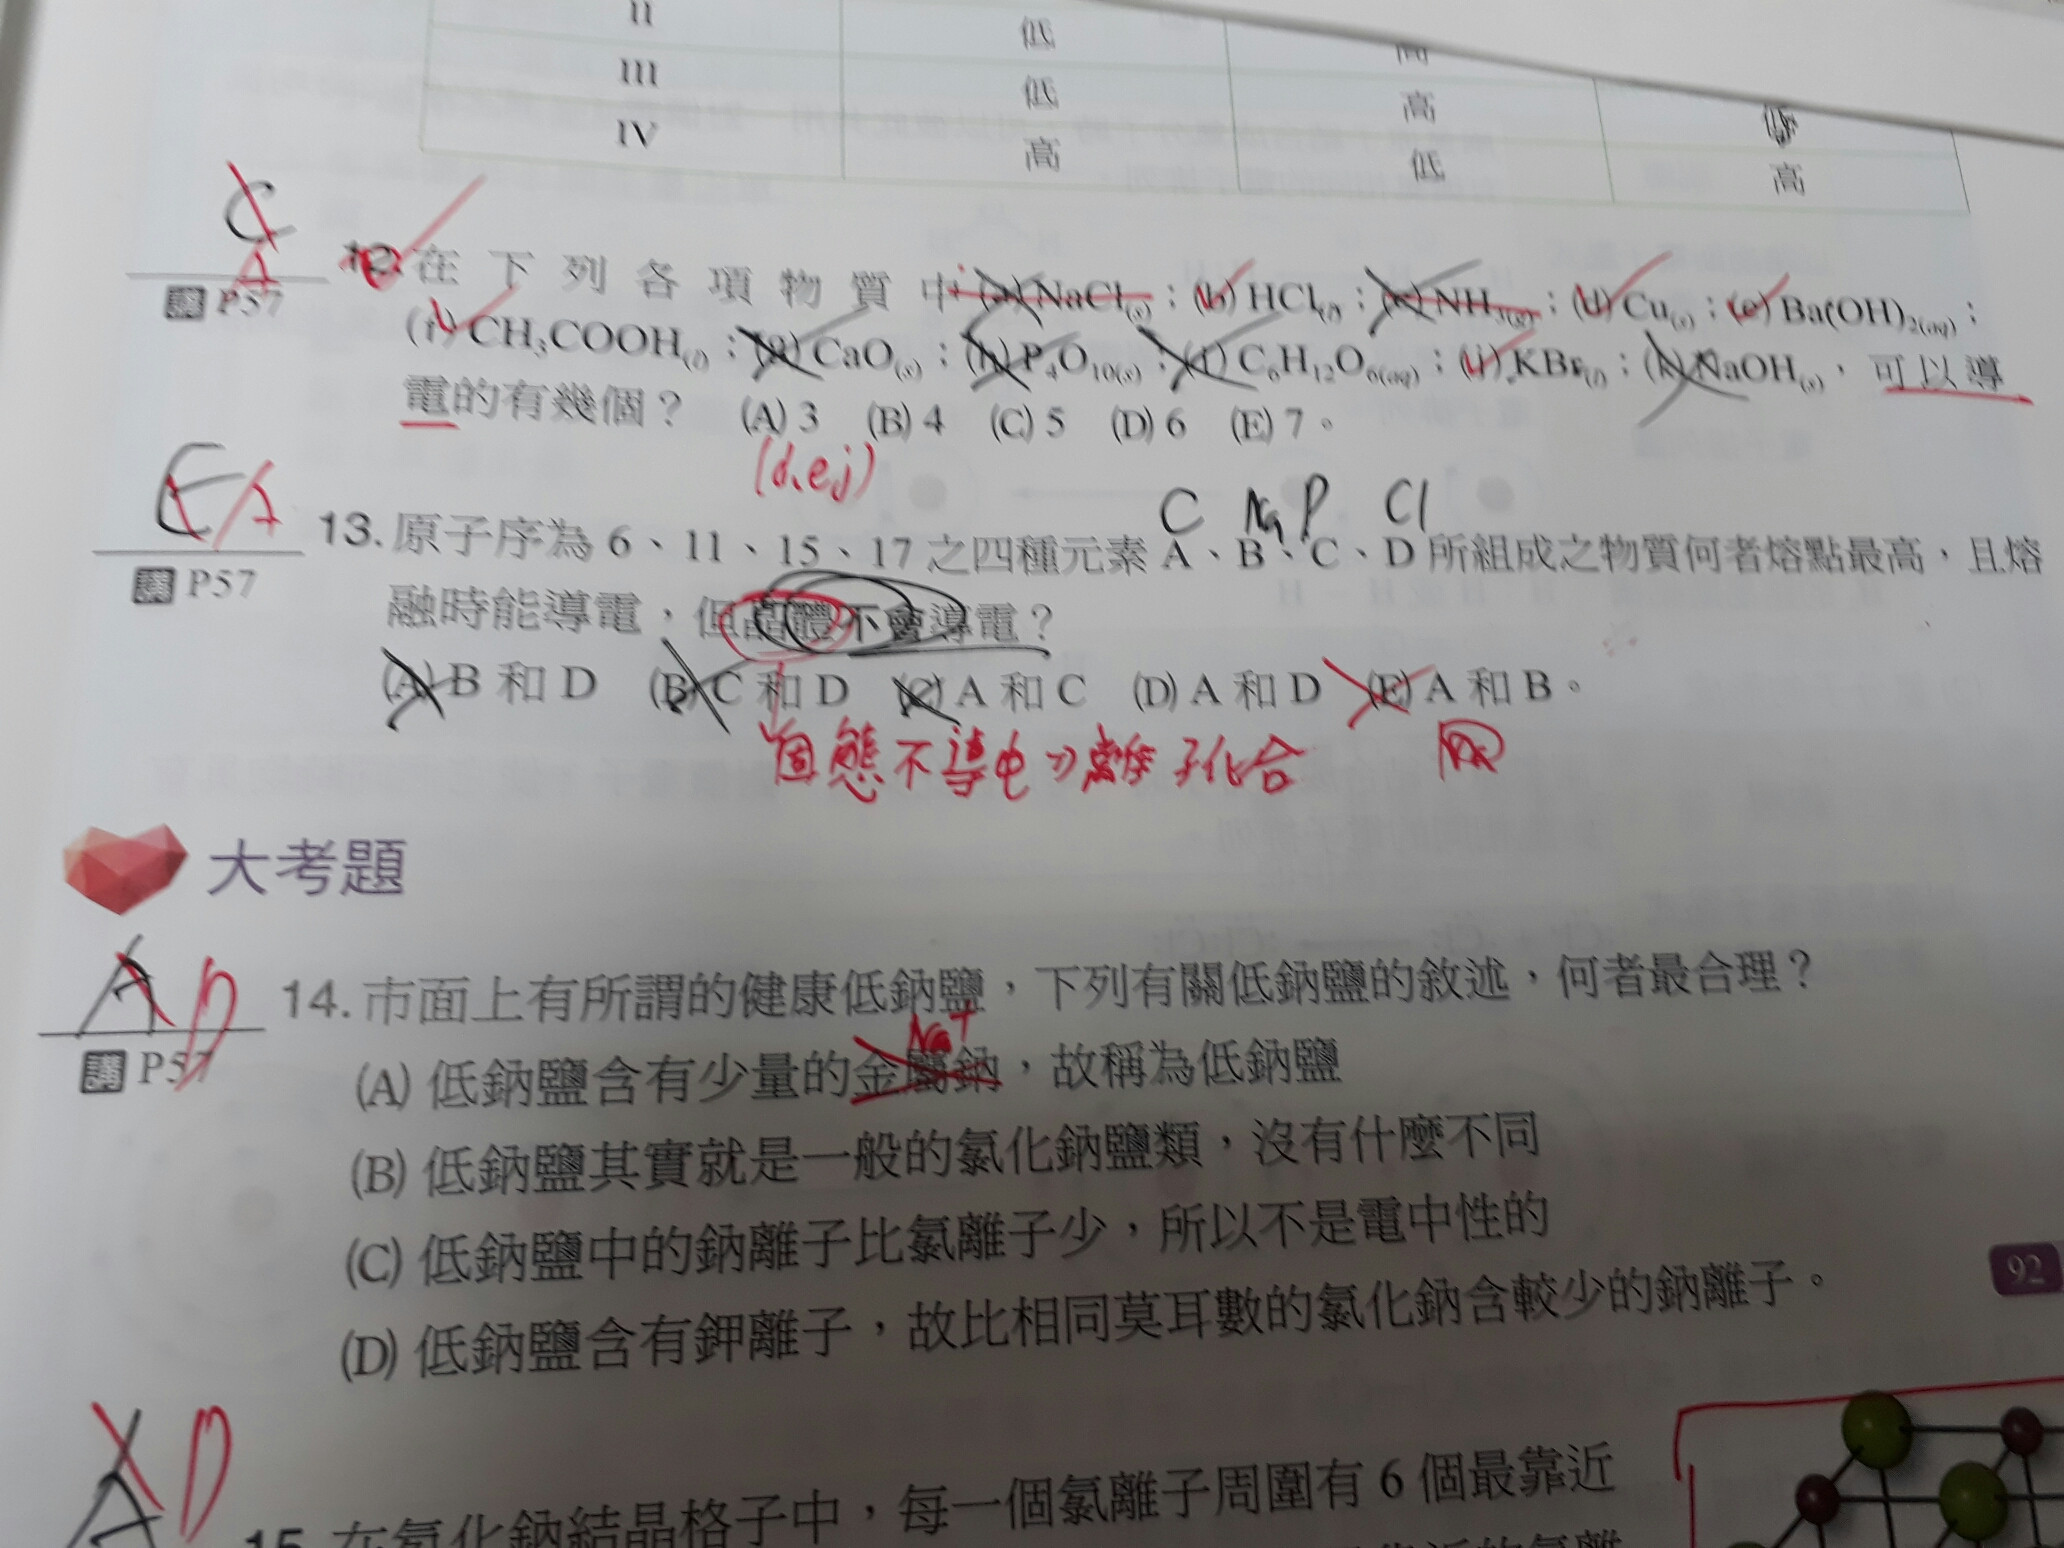 II 低 高
III 低 高 低
IV 高 低 高
C A
12. 在下列各項物質中:(a) NaCl(s);(b) HCl(l);(c) NH3(g);(d) Cu(s);(e) Ba(OH)2(aq);
講 P57
(f) CH3COOH(l);(g) CaO(s);(h) P4O10(s);(i) C6H12O6(aq);(j) KBr(l);(k) NaOH(s),可以導
電的有幾個? (A) 3 (B) 4 (C) 5 (D) 6 (E) 7。
(d、e、j)
C Na P Cl
E A
13. 原子序為 6、11、15、17 之四種元素 A、B、C、D 所組成之物質何者熔點最高,且熔
講 P57
融時能導電,但晶體不會導電?
(A) B 和 D (B) C 和 D (C) A 和 C (D) A 和 D (E) A 和 B。
固態不導电⇒離子化合
大考題
A D
14. 市面上有所謂的健康低鈉鹽,下列有關低鈉鹽的敘述,何者最合理?
講 P57
Na+
(A) 低鈉鹽含有少量的金屬鈉,故稱為低鈉鹽
(B) 低鈉鹽其實就是一般的氯化鈉鹽類,沒有什麼不同
(C) 低鈉鹽中的鈉離子比氯離子少,所以不是電中性的
92
(D) 低鈉鹽含有鉀離子,故比相同莫耳數的氯化鈉含較少的鈉離子。
A D
15. 在氯化鈉結晶格子中,每一個氯離子周圍有 6 個最靠近